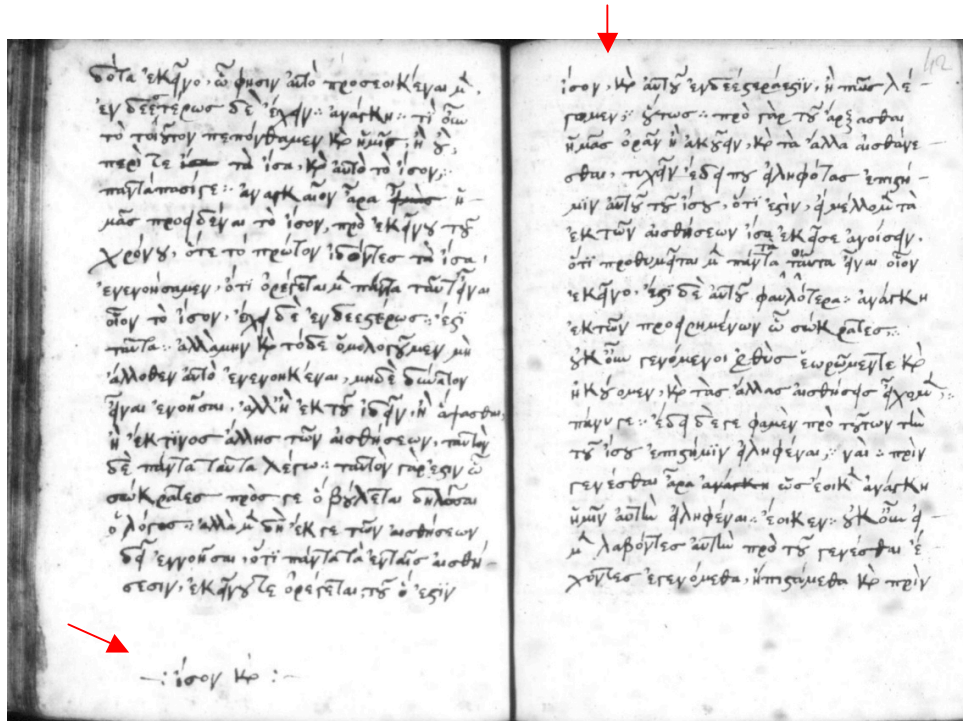 δότα ἐκεῖνο, ὧ φησιν αὐτὸ προσεοικέναι μὲν,
ἐνδεεστέρως δὲ ἔχειν: ἀνάγκη: τί οὖν
τὸ τοιοῦτον πεπόνθαμεν καὶ ἡμεῖς, ἢ οὔ,
περί τε τὰ ἴσα, καὶ αὐτὸ τὸ ἴσον;
παντάπασί γε: ἀναγκαῖον ἄρα ἡ-
μᾶς προειδέναι τὸ ἴσον, πρὸ ἐκείνου τοῦ
χρόνου, ὅτε τὸ πρῶτον ἰδόντες τὰ ἴσα,
ἐνενοήσαμεν, ὅτι ὀρέγεται μὲν πάντα ταῦτ εἶναι
οἷον τὸ ἴσον, ἔχει δὲ ἐνδεεστέρως: ἔστι
ταῦτα: ἀλλὰ μὴν καὶ τόδε ὁμολογοῦμεν, μὴ
ἄλλοθεν αὐτὸ ἐνενοηκέναι, μηδὲ δυνατὸν
εἶναι ἐνοῆσαι, ἀλλ' ἢ ἐκ τοῦ ἰδεῖν, ἢ ἅψασθαι,
ἢ ἐκ τινος ἄλλης τῶν αἰσθήσεων, ταυτὸν
δὲ πάντα ταῦτα λέγω: ταυτὸν γάρ ἐστιν ὦ
σώκρατες πρὸς γε ὃ βούλεται δηλῶσαι
ὁ λόγος: ἀλλὰ μὲν δὴ ἐκ γε τῶν αἰσθήσεων
δεῖ ἐννοῆσαι, ὅτι πάντα τὰ ἐν ταῖς αἰσθή
σεσιν, ἐκείνου τε ὀρέγεται, τοῦ ὅ ἐστιν
—: ἴσον καὶ :—
42
ἴσον, καὶ αὐτοῦ ἐνδεέστερά ἐστιν, ἢ πῶς λέ
γωμεν; οὕτως: πρὸ γὰρ τοῦ ἄρξασθαι
ἡμᾶς ὁρᾶν ἢ ἀκούειν, καὶ τὰ ἄλλα αἰσθάνε
σθαι, τυχεῖν ἔδει που εἰληφότας ἐπιστή
μην αὐτοῦ τοῦ ἴσου, ὅτι ἔστιν, εἰ μέλλομεν τὰ
ἐκ τῶν αἰσθήσεων ἴσα ἐκεῖσε ἀνοίσειν,
ὅτι προθυμεῖται μὲν πάντα τὰ τοιαῦτα εἶναι οἷον
ἐκεῖνο, ἔστι δὲ αὐτοῦ φαυλότερα: ἀνάγκη
ἐκ τῶν προειρημένων ὦ σώκρατες:
οὐκοῦν γενόμενοι εὐθὺς ἑωρῶμεν τε καὶ
ἠκούομεν, καὶ τὰς ἄλλας αἰσθήσεις εἴχομεν;
πάνυ γε: ἔδει δέ γε φαμεν πρὸ τούτων τὴν
τοῦ ἴσου ἐπιστήμην εἰληφέναι; ναί: πρὶν
γενέσθαι ἄρα ἀνάγκη ὡς ἔοικ' ἀνάγκη
ἡμῖν αὐτὴν εἰληφέναι: ἔοικεν: οὐκοῦν εἰ
μὲν λαβόντες αὐτὴν πρὸ τοῦ γενέσθαι ἔ
χοντες ἐγενόμεθα, ἠπιστάμεθα καὶ πρὶν